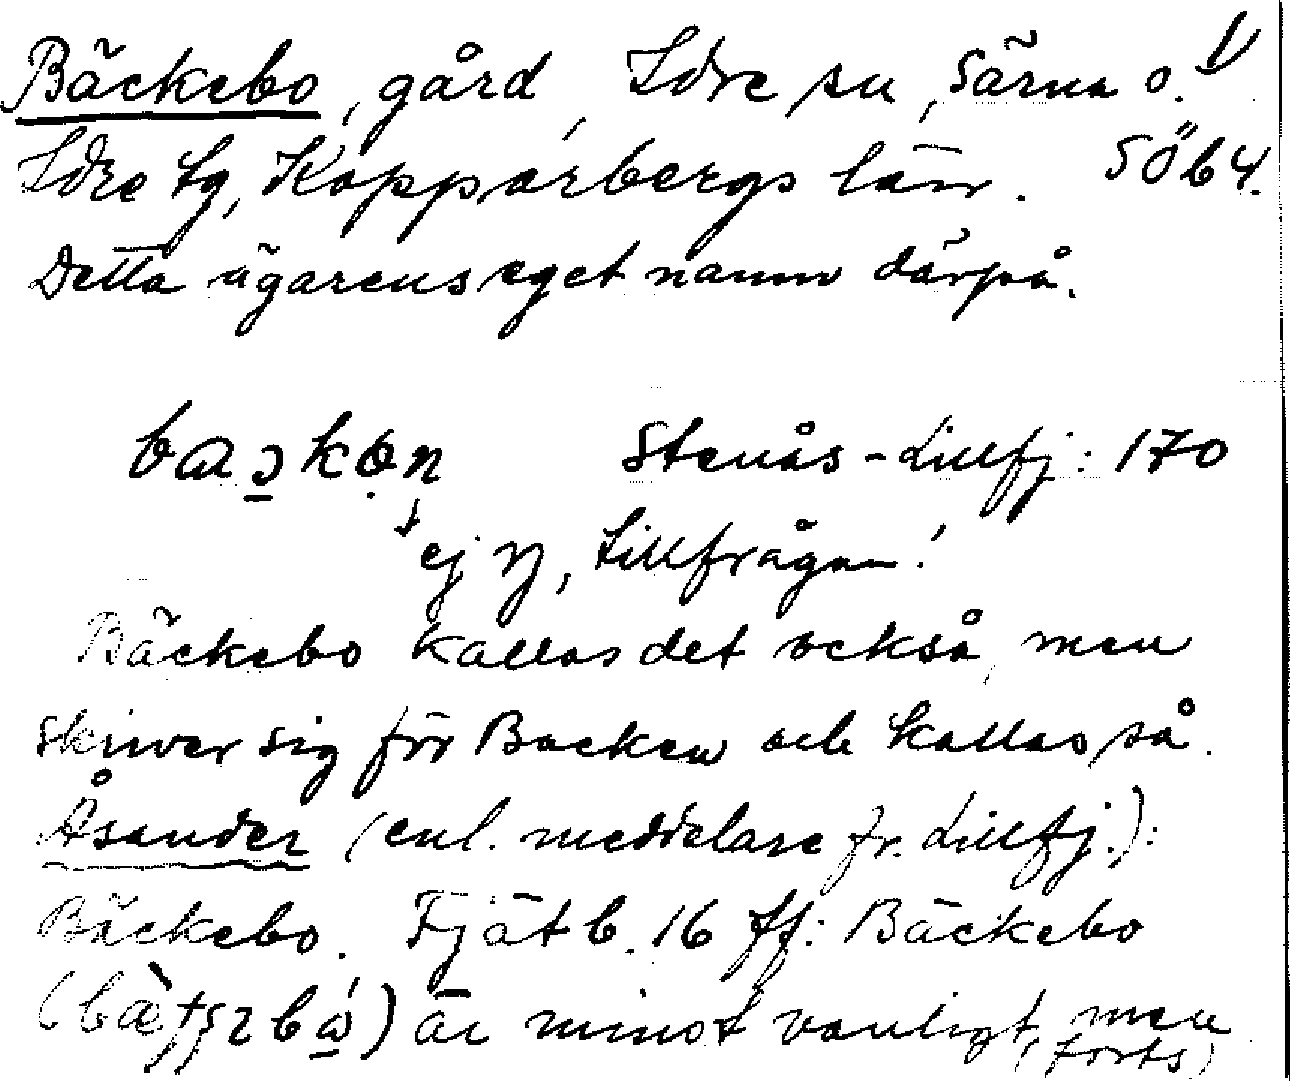 Bäckebo, gård, Idre sn, Särna o. 1/
Idre tg, Kopparbergs län. SÖb4.
Detta ägarens eget namn därpå.
Stenås - Lillfj: 170
ej ŋ, tillfrågan!
Bäckebo kallas det också, men
skriver sig för Backen och kallas så.
Åsander (enl. meddelare fr. Lillfj.):
Bäckebo. Fjätb. 16 ff: Bäckebo
är minst vanligt, men
(forts)